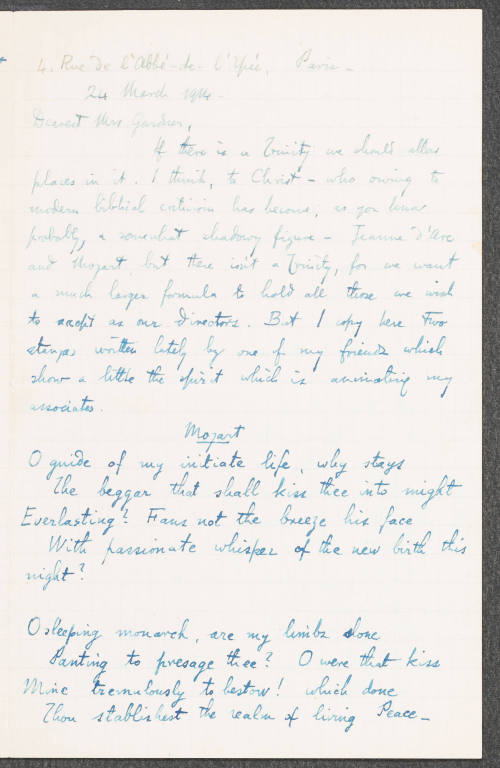 4. Rue de l'Abbé-de-l'Épée, Paris -
24 March 1914 -
Dearest Mrs Gardner,
If there is a Trinity we should allow
places in it. I think, to Christ - who owing to
modern biblical criticism has become, as you know
probably, a somewhat shadowy figure - Jeanne d'Arc
and Mozart, but there isn't a Trinity, for we want
a much larger formula to hold all those we wish
to accept as our Directors. But I copy here two
stanzas written lately by one of my friends which
show a little the spirit which is animating my
associates.
Mozart
O guide of my initiate life, why stays
The beggar that shall kiss thee into might
Everlasting? Fans not the breeze his face
With passionate whisper of the new birth this
night?
O sleeping monarch, are my limbs alone
Panting to presage thee? O were that kiss
Mine tremulously to bestow! which done
Thou stablishest the realm of living Peace -